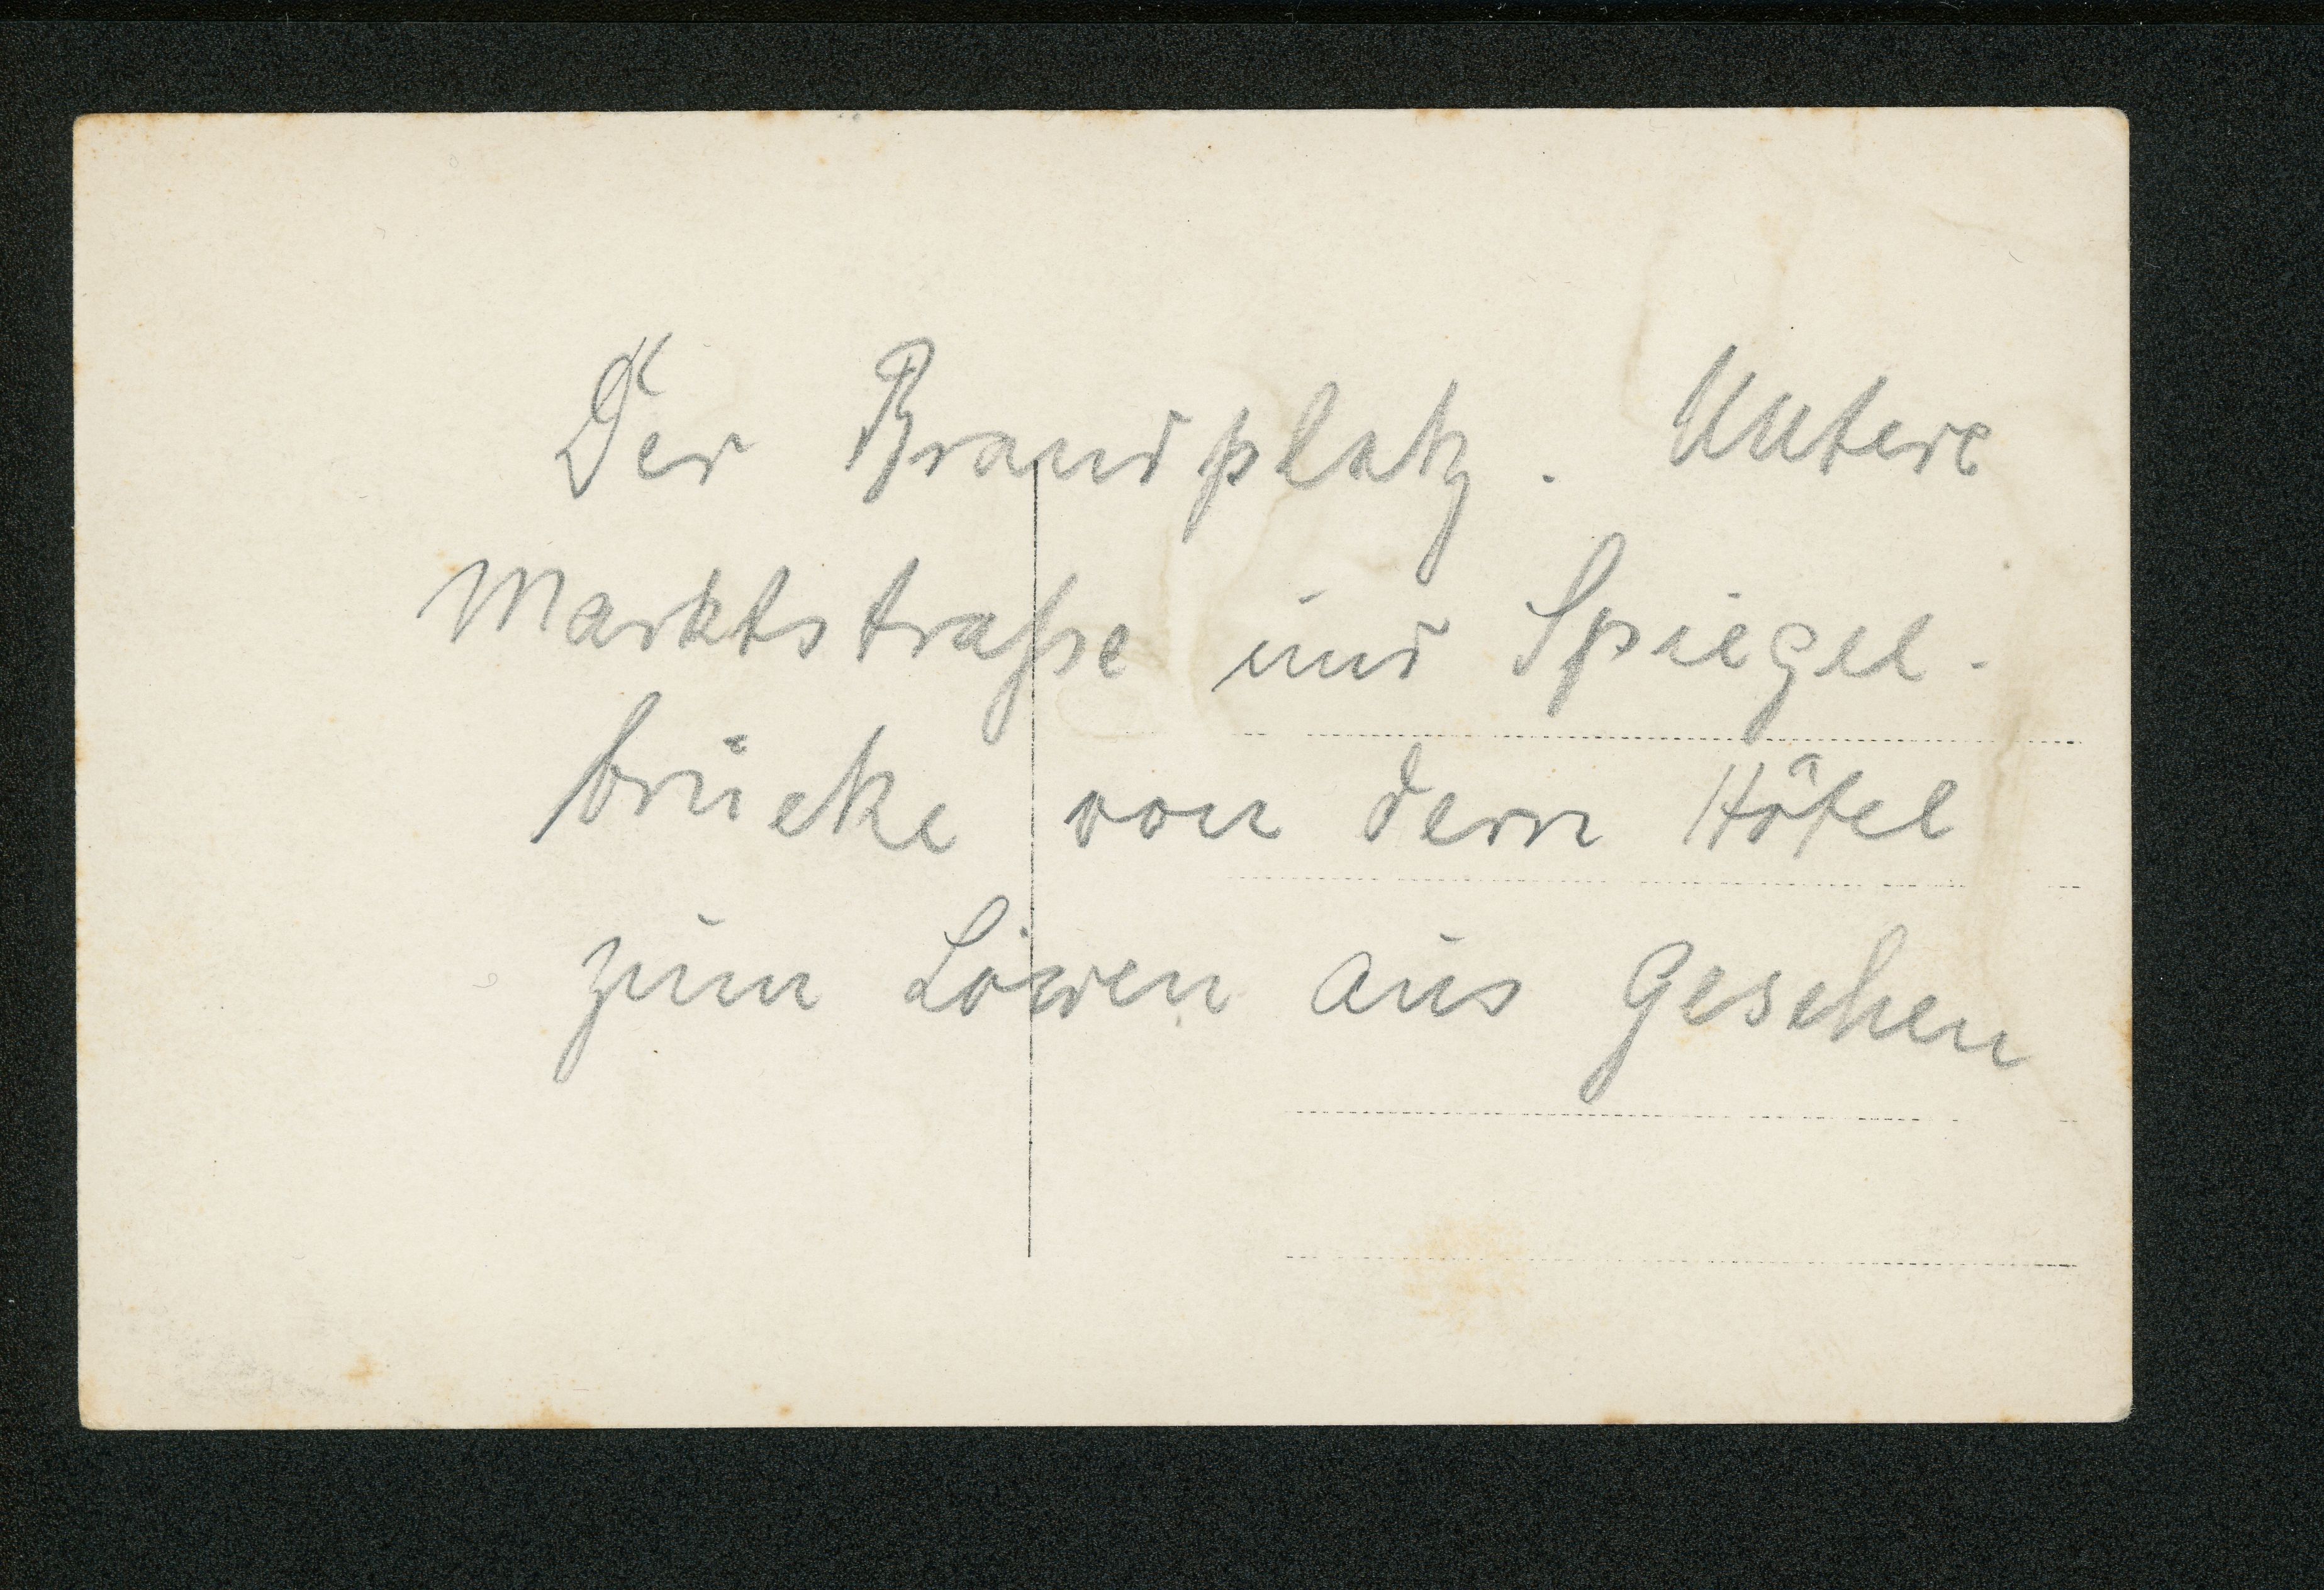 Der Brandplatz. Untere
Marktstraße und Spiegel-
brücke von dem Hôtel
zum Löwen aus Gesehen